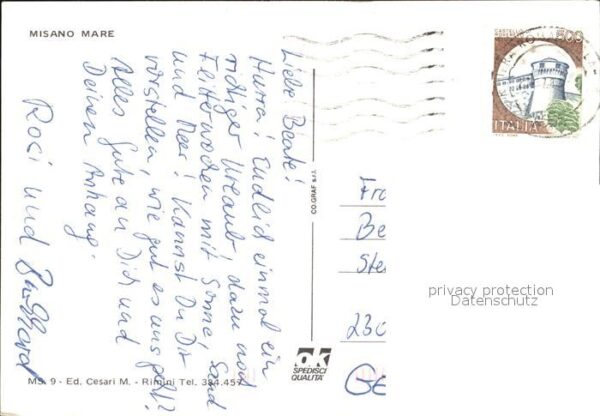 MISANO MARE
Liebe Beate!
Hurra! Endlich einmal ein
richtiger Urlaub, dazu noch
Flitterwochen mit Sonne, Sand
und Meer! Kannst Du Dir
vorstellen, wie gut es uns geht?
Alles Gute an Dich und
Deinen Anhang!
Rosi und
CO.GRAF s.r.l.
500
ITALIA
Fr
Be
Ste
230
GE
privacy protection
Datenschutz
ok
SPEDISCI
QUALITÀ
MS. 9 - Ed. Cesari M. - Rimini Tel. 384.457